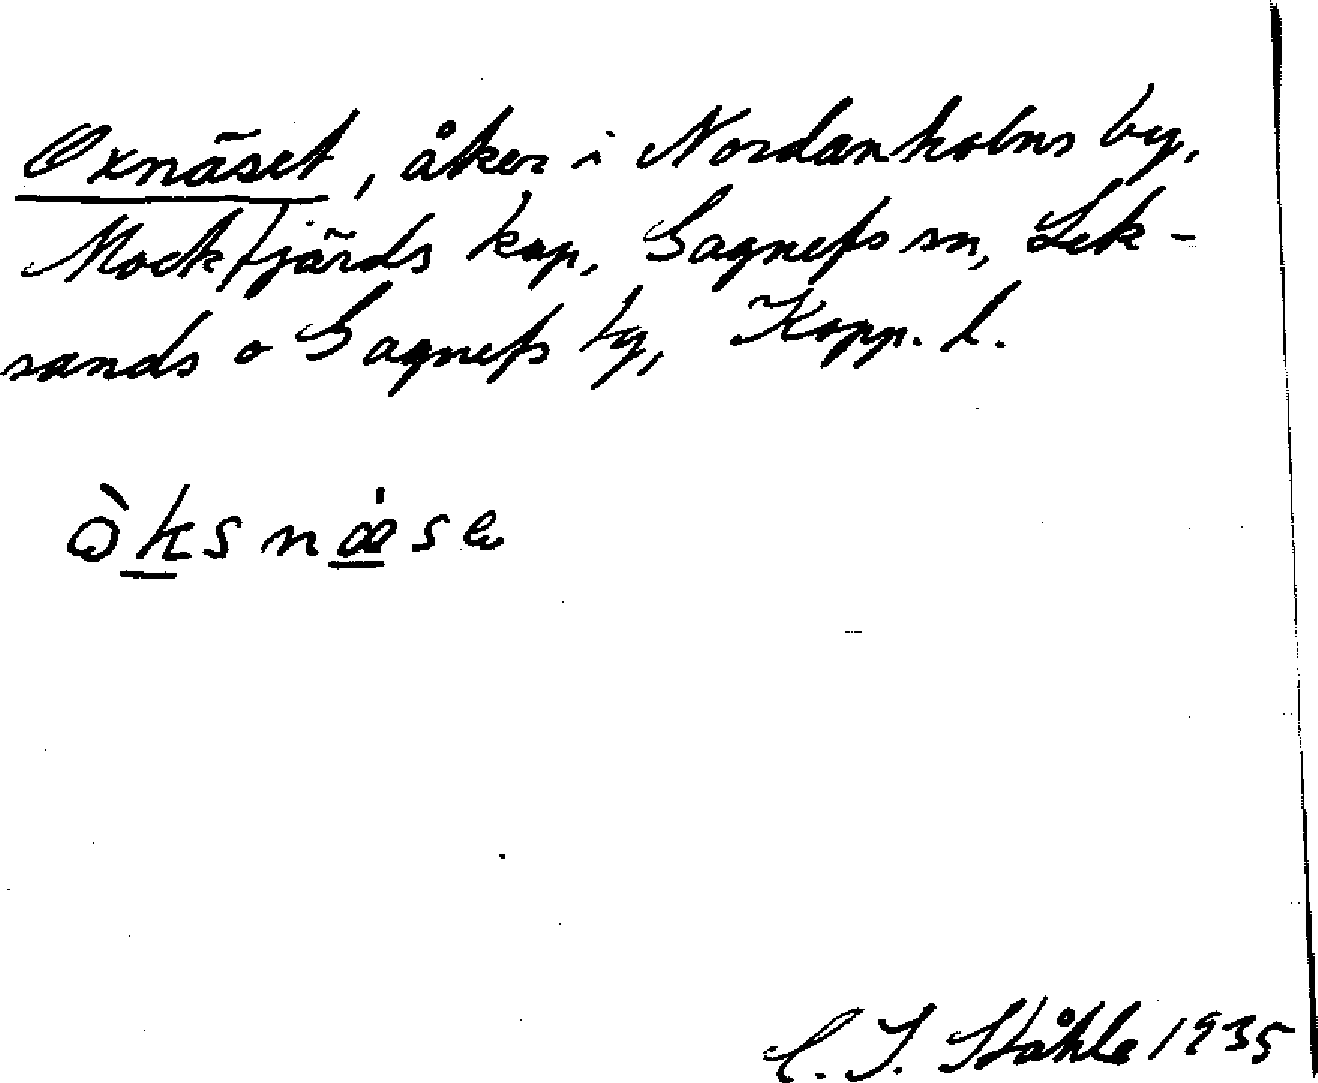 Oxnäset, åker i Nordanholns by,
Mockfjärds kap, Gagnefs sn, Lek-
sands o Gagnefs tg, Kopp. l.
ò̱ksnæ̱se
C. I. Ståhle 1935